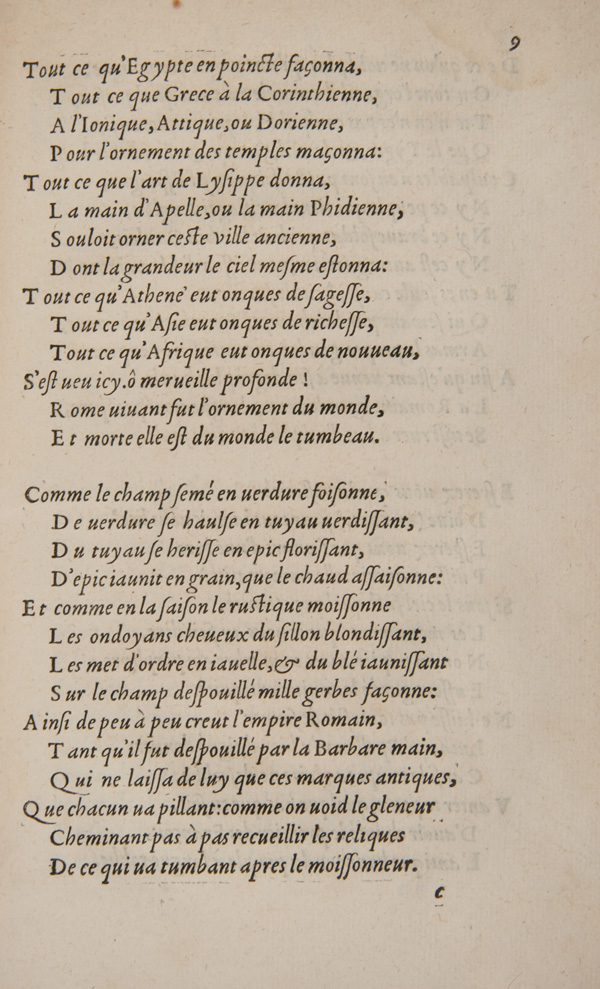 9
Tout ce qu'Egypte en poincte façonna,
Tout ce que Grece à la Corinthienne,
A l'Ionique, Attique, ou Dorienne,
Pour l'ornement des temples maçonna:
Tout ce que l'art de Lyſippe donna,
La main d'Apelle, ou la main Phidienne,
Souloit orner ceſte ville ancienne,
Dont la grandeur le ciel meſme eſtonna:
Tout ce qu'Athene' eut onques de ſageſſe,
Tout ce qu'Aſie eut onques de richeſſe,
Tout ce qu'Afrique eut onques de nouueau,
S'eſt ueu icy. ô merueille profonde !
Rome uiuant fut l'ornement du monde,
Et morte elle eſt du monde le tumbeau.
Comme le champ ſemé en uerdure foiſonne,
De uerdure ſe haulſe en tuyau uerdiſſant,
Du tuyau ſe heriſſe en epic floriſſant,
D'epic iaunit en grain, que le chaud aſſaiſonne:
Et comme en la ſaiſon le ruſtique moiſſonne
Les ondoyans cheueux du ſillon blondiſſant,
Les met d'ordre en iauelle, & du blé iauniſſant
Sur le champ deſpouillé mille gerbes façonne:
Ainſi de peu à peu creut l'empire Romain,
Tant qu'il fut deſpouillé par la Barbare main,
Qui ne laiſſa de luy que ces marques antiques,
Que chacun ua pillant: comme on uoid le gleneur
Cheminant pas à pas recueillir les reliques
De ce qui ua tumbant apres le moiſſonneur.
C